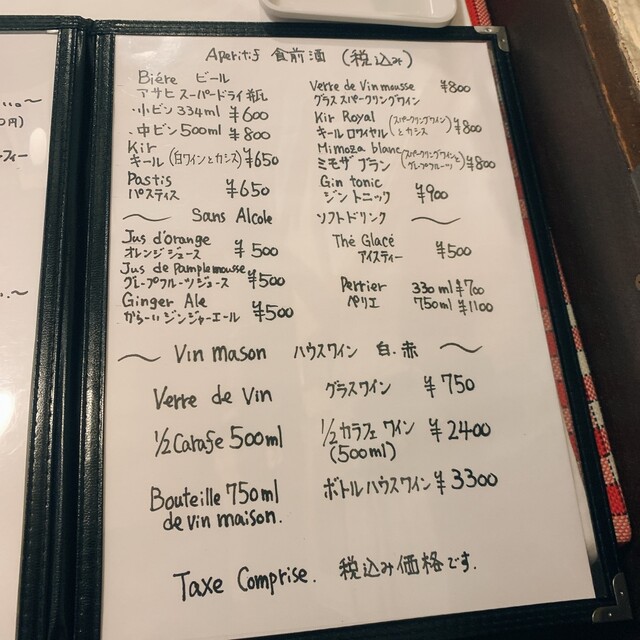 ...〜
0円)
-フィー
...〜
Aperitif 食前酒 (税込み)
Biére ビール
アサヒスーパードライ瓶
・小ビン 334ml ¥600
・中ビン 500ml ¥800
Kir
キール (白ワインとカシス) ¥650
Pastis
パスティス ¥650
Verre de Vin mousse ¥800
グラススパークリングワイン
Kir Royal (スパークリングワインとカシス) ¥800
キールロワイヤル
Mimoza blanc (スパークリングワインとグレープフルーツ) ¥800
ミモザ ブラン
Gin tonic
ジントニック ¥900
〜 Sans Alcole ソフトドリンク 〜
Jus d'orange
オレンジジュース ¥500
Jus de Pamplemousse
グレープフルーツジュース ¥500
Ginger Ale
からーいジンジャーエール ¥500
Thé Glacé
アイスティー ¥500
Perrier 330ml ¥700
ペリエ 750ml ¥1100
〜 Vin mason ハウスワイン 白.赤 〜
Verre de Vin グラスワイン ¥750
1/2 Carafe 500ml 1/2 カラフェ ワイン ¥2400
(500ml)
Bouteille 750ml ボトルハウスワイン ¥3300
de vin maison.
Taxe Comprise. 税込み価格です.